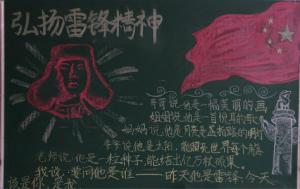 弘扬雷锋精神
哥哥说他是一幅美丽的画
姐姐说他是一首悦耳的歌
妈妈说,他是月亮
爷爷说他是太阳,能照亮世界每个角落
老师说,他是一粒种子,能结出亿万枚硕果
我说,要问他是谁——昨天他是雷锋,今天
该是你是我